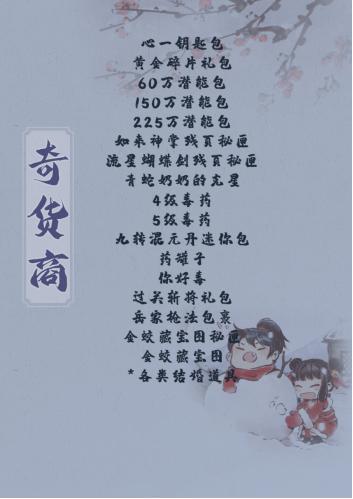 奇货商
心一钥匙包
黄金碎片礼包
60万潜能包
150万潜能包
225万潜能包
如来神掌残页秘匣
流星蝴蝶剑残页秘匣
青蛇奶奶的克星
4级毒药
5级毒药
九转混元丹迷你包
药罐子
你好毒
过关斩将礼包
岳家枪法包裹
金蛟藏宝图秘匣
金蛟藏宝图
*各类结婚道具